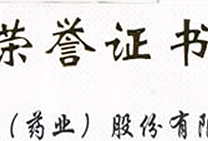 荣誉证书
（药业）股份有限